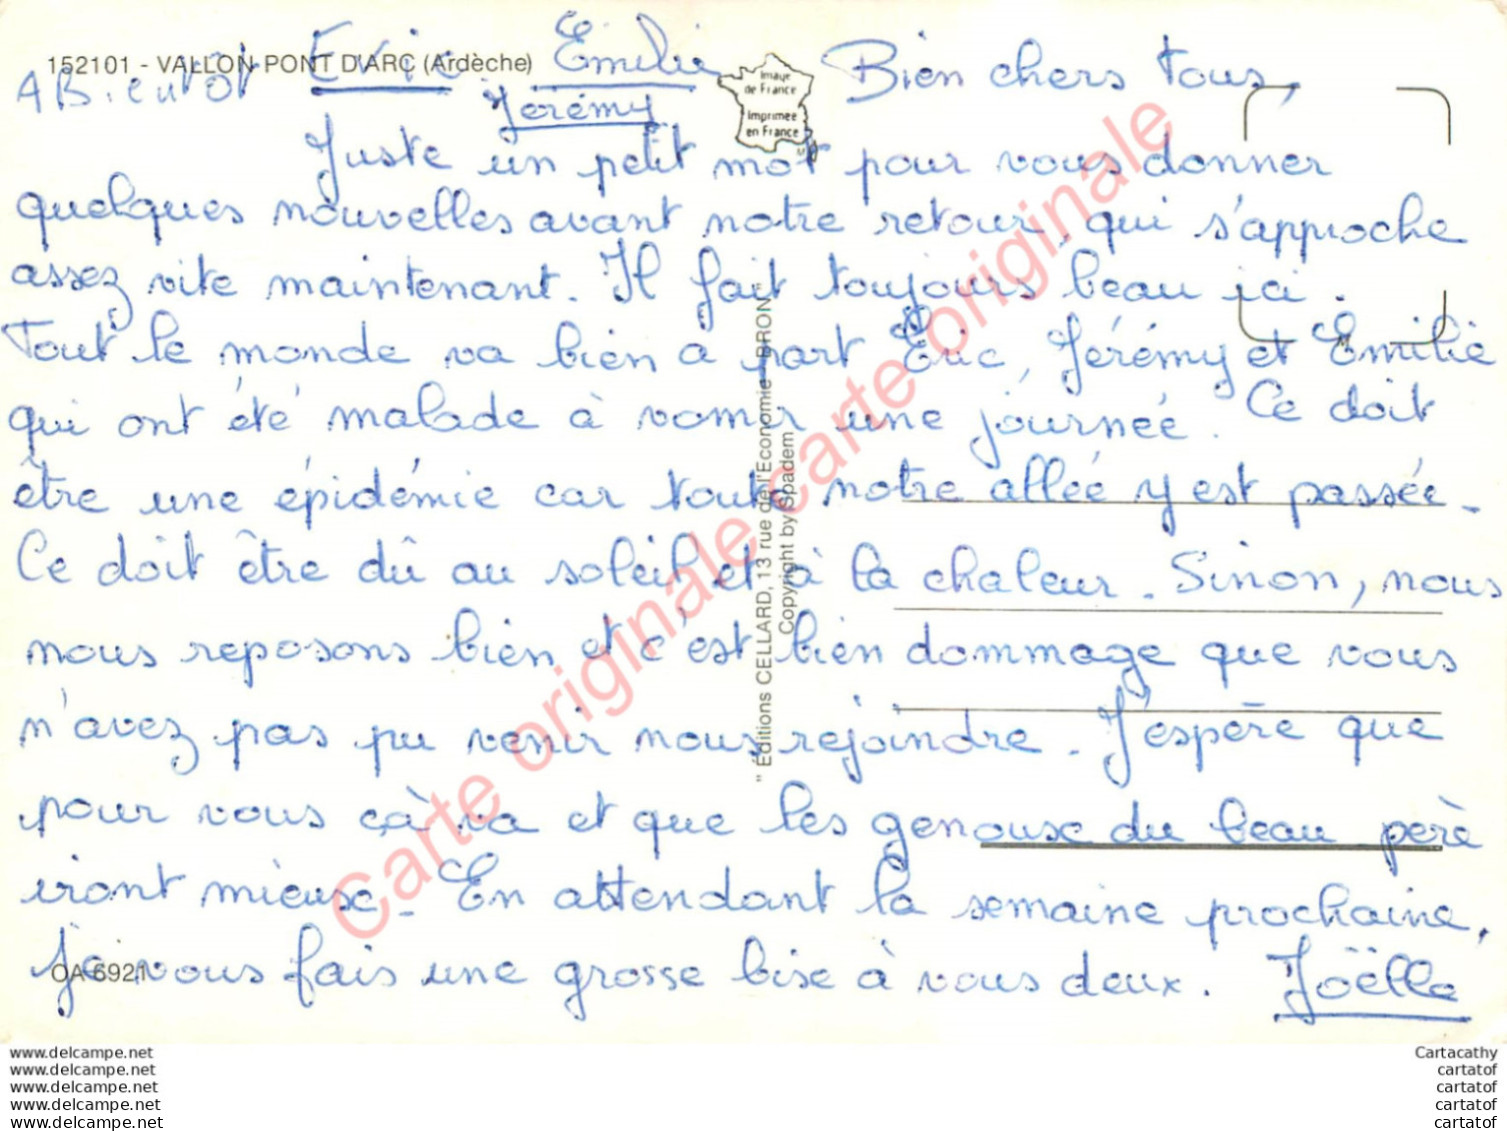 152101 - VALLON PONT D'ARC (Ardèche)
A Bientôt Eric Emilie
Jérémy
Image
de France
Imprimée
en France
Bien chers tous,
Juste un petit mot pour vous donner
quelques nouvelles avant notre retour, qui s'approche
assez vite maintenant. Il fait toujours beau ici.
Tout le monde va bien à part Eric, Jérémy et Emilie
qui ont été malade à vomir une journée. Ce doit
être une épidémie car toute notre allée y est passée.
Ce doit être dû au soleil et à la chaleur. Sinon, nous
nous reposons bien et c'est bien dommage que vous
n'avez pas pu venir nous rejoindre. J'espère que
pour vous çà va et que les genoux du beau père
iront mieux. En attendant la semaine prochaine,
je vous fais une grosse bise à vous deux. Joëlle
OA 6921
" Éditions CELLARD, 13 rue de l'Economie BRON "
Copyright by Spadem
Carte originale carte originale
www.delcampe.net
www.delcampe.net
www.delcampe.net
www.delcampe.net
www.delcampe.net
Cartacathy
cartatof
cartatof
cartatof
cartatof